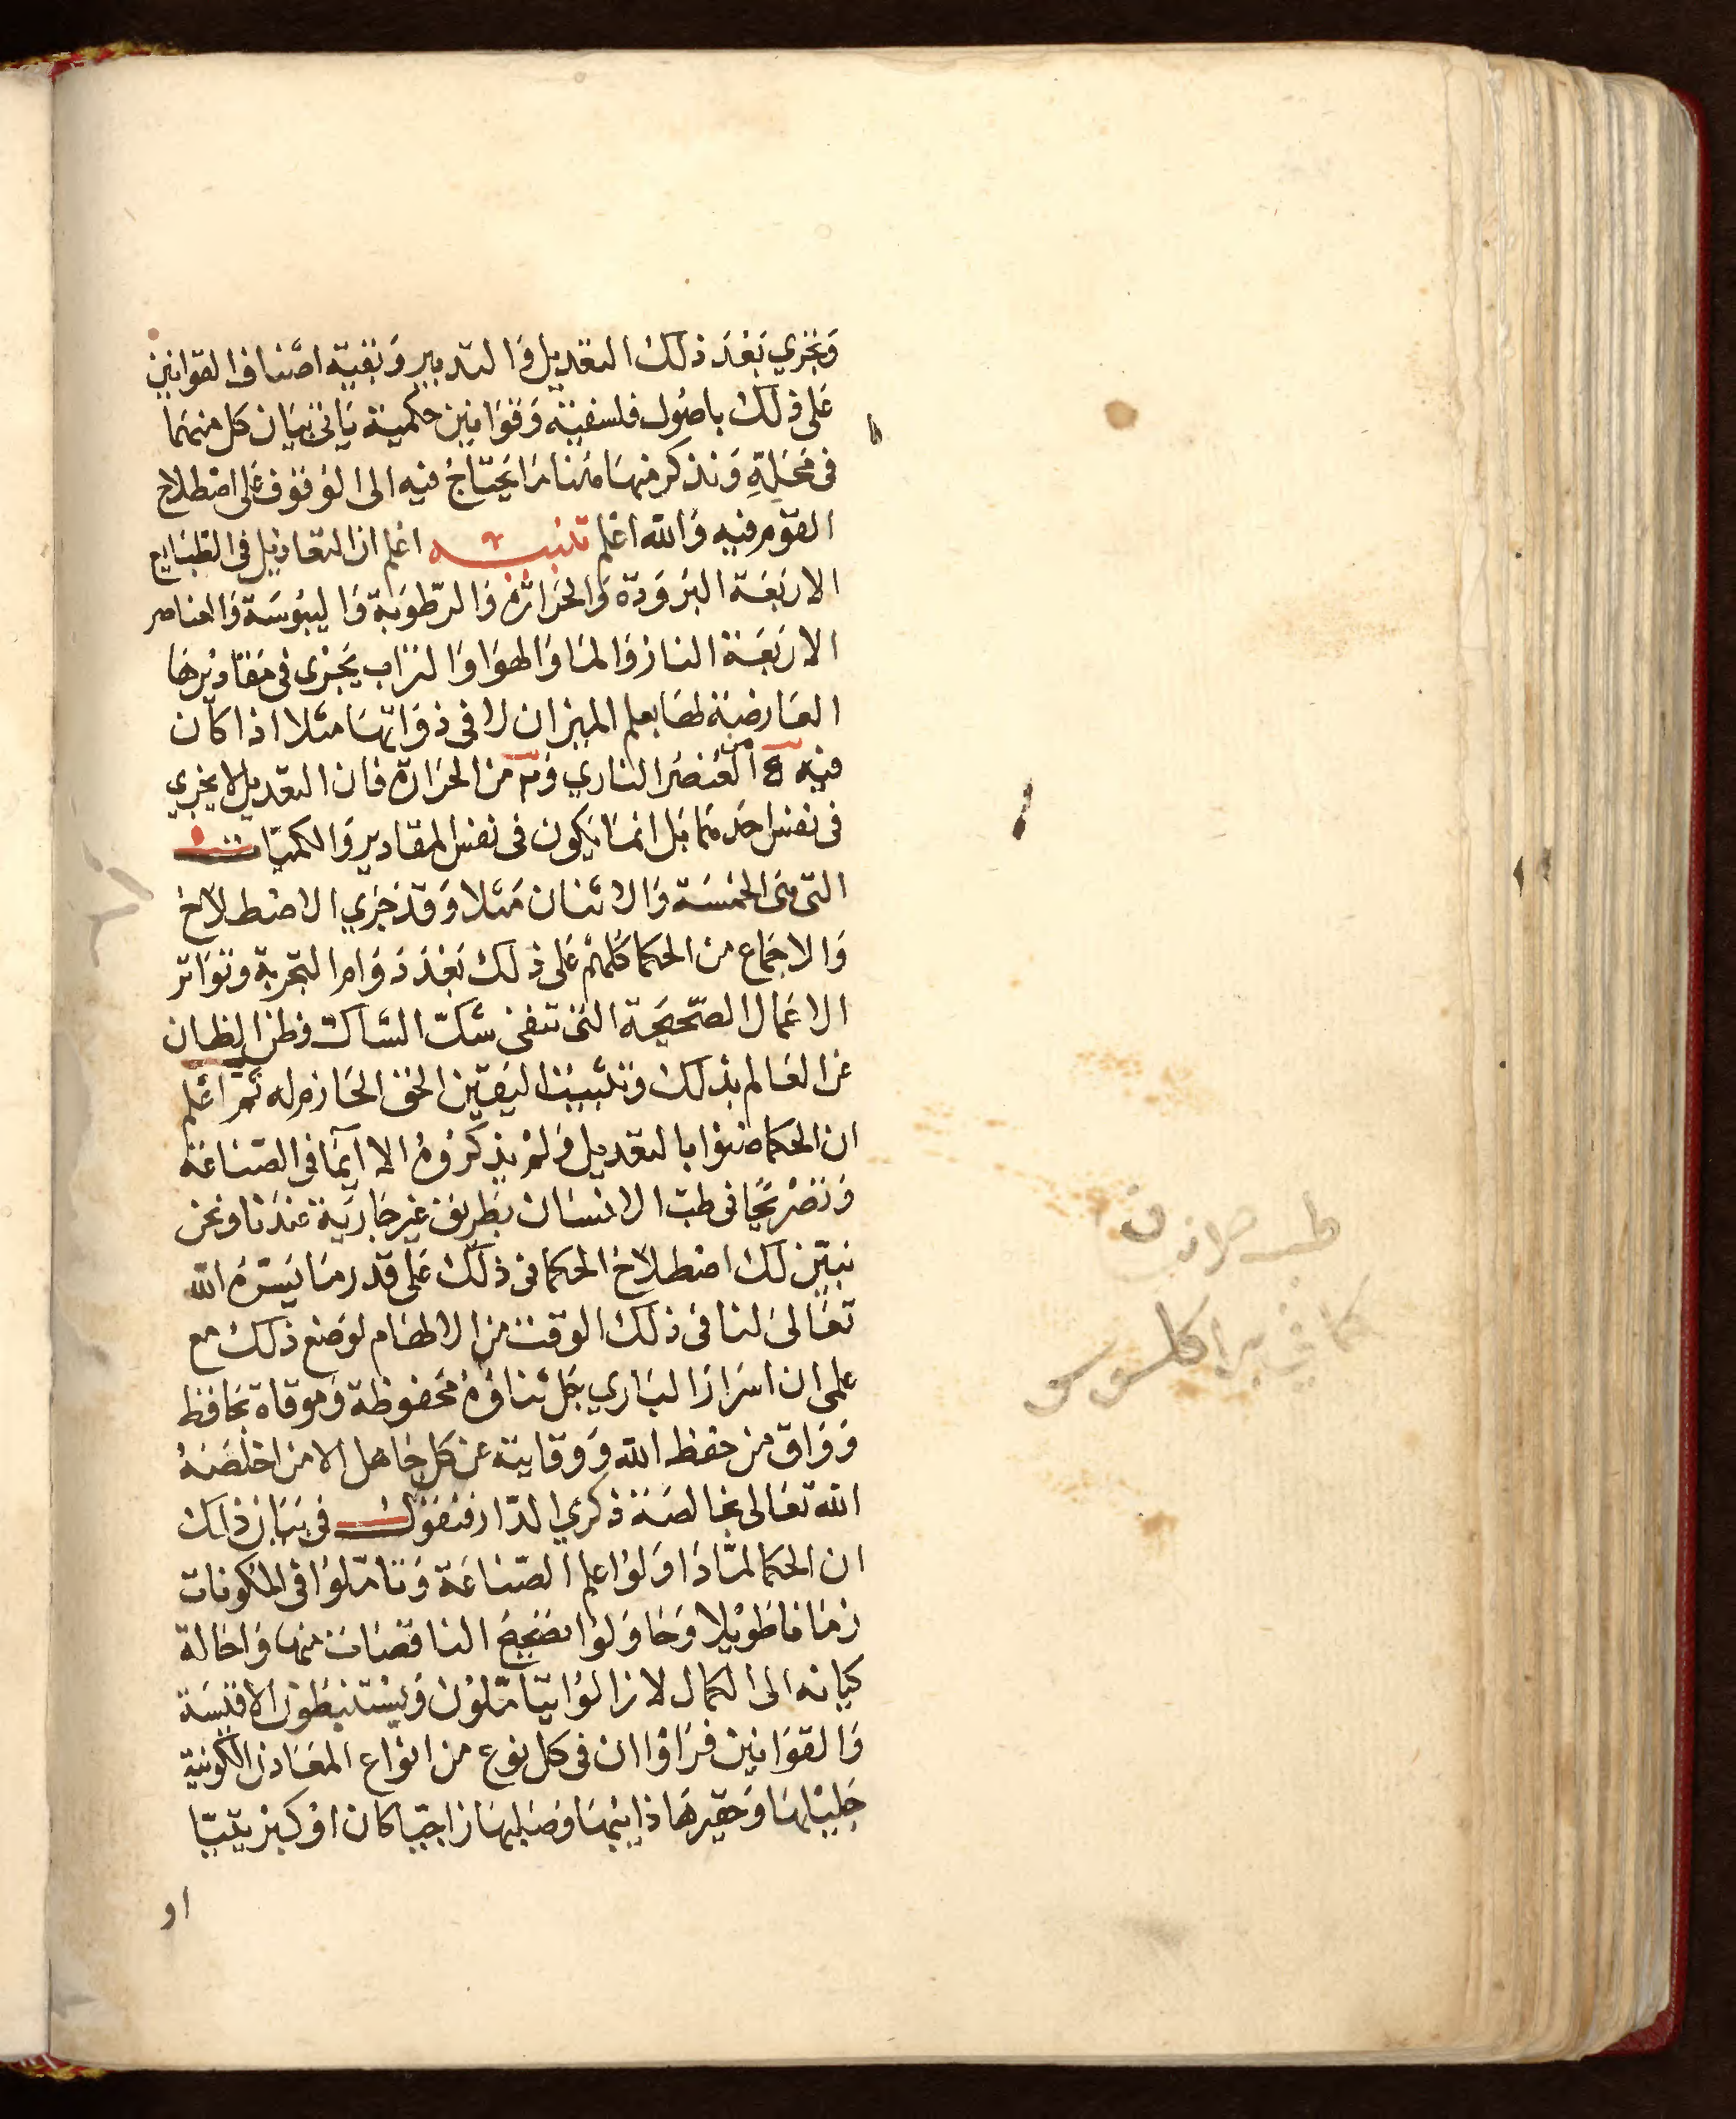 وتجري بعد ذلك التعديل والتدبير وبقية اصناف القوانين
على ذلك باصول فلسفية وقوانين حكمية ياتي بيان كل منهما
في محله ونذكر منها هنا ما يحتاج فيه الى الوقوف على اصطلاح
القوم فيه والله اعلم تنبيه اعلم ان التعاديل في الطبايع
الاربعة البرودة والحرارة والرطوبة واليبوسة والعناصر
الاربعة النار والماء والهوا والتراب يجري في مقاديرها
العارضة لها بعلم الميزان لا في ذواتها مثلا اذا كان
فيه ٥ العنصر الناري و٢ من الحرارة فان التعديل لا يجري
في نفس احدهما بل انما يكون في نفس المقادير والكميات
التي هي الخمسة والاثنان مثلا وقد جري الاصطلاح
والاجماع من الحكما كلهم على ذلك بعد دوام التجربة وتواتر
الاعمال الصحيحة التي تنفي شك الشاك وظن الظان
عن العالم بذلك وتثبيت اليقين الحق الجازم له ثم اعلم
ان الحكما ضنوا بالتعديل ولم يذكروه الا ايما في الصناعة
وتصريحا في طب الانسان بطريق غير جارية عندنا ونحن
نبين لك اصطلاح الحكما في ذلك على قدر ما يسره الله
تعالى لنا في ذلك الوقت من الالهام لوضع ذلك مع
علمي ان اسرار الباري جل ثناؤه محفوظة وموقاة بحافظ
وواق من حفظ الله ووقايته عن كل جاهل الا من اخلصه
الله تعالى بخالصة ذكري الدار فنقول في بيان ذلك
ان الحكما لما داولوا علم الصناعة وتاملوا في المكونات
زمانا طويلا وحاولوا تصحيح الناقصات منها واحالة
كيانه الى الكمال لا زالوا يتاملون ويستنبطون الاقيسة
والقوانين فراوا ان في كل نوع من انواع المعادن الكونية
جليلها وحقيرها ذايبها وصلبها زاجيا كان او كبريتيا
او